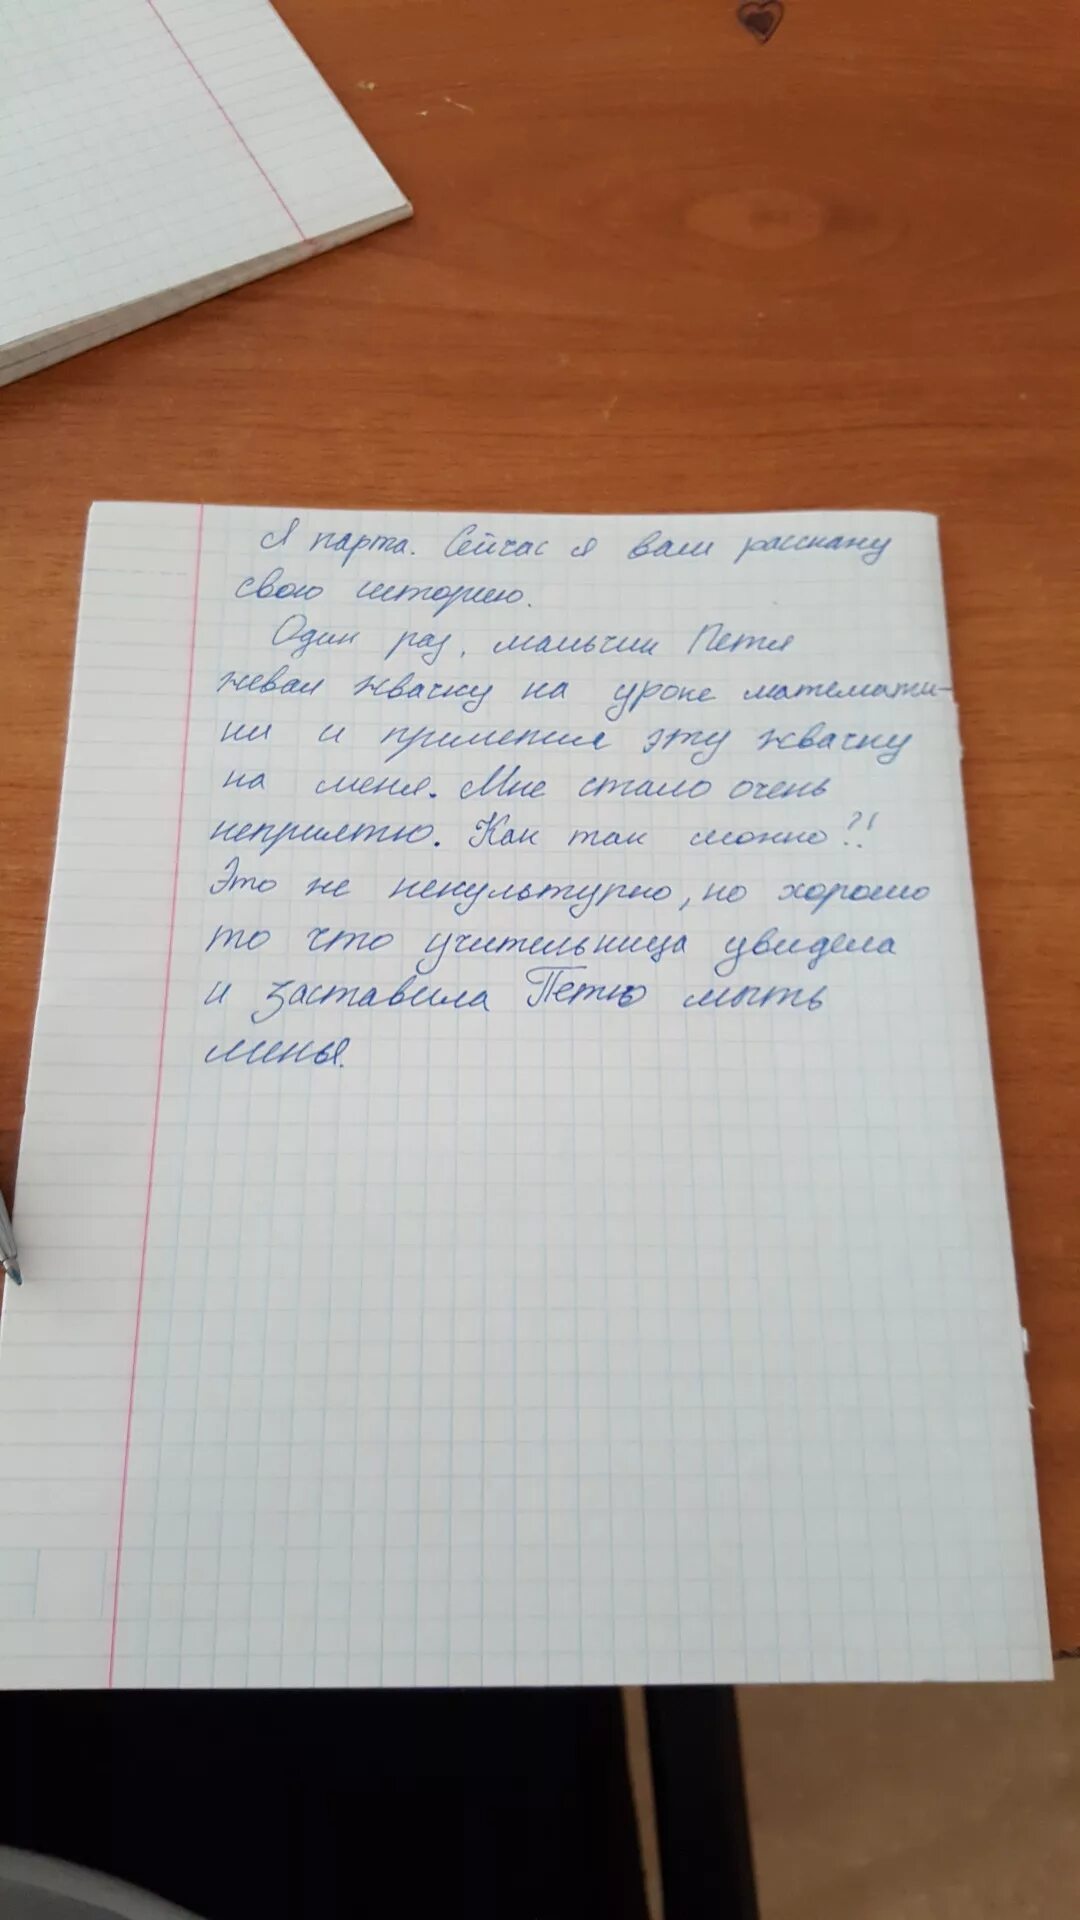 Я парта. Сейчас я вам расскажу
свою историю.
Один раз, мальчик Петя
жевал жвачку на уроке математи-
ки и прилепил эту жвачку
на меня. Мне стало очень
неприятно. Как так можно?!
Это же некультурно, но хорошо
то что учительница увидела
и заставила Петю мыть
меня.